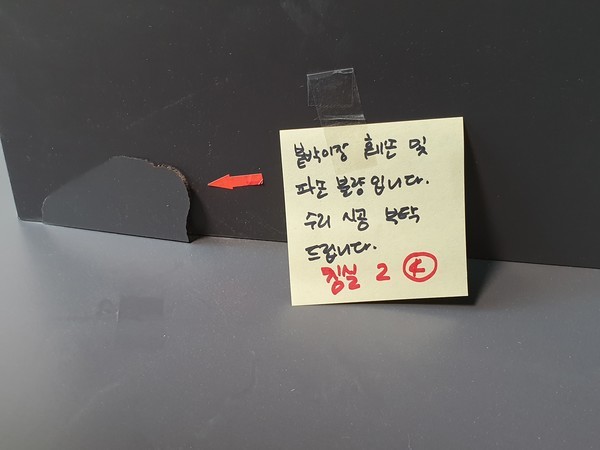 붙박이장 훼손 및
파손 불량입니다.
수리 시공 부탁
드립니다.
침실 2 ④